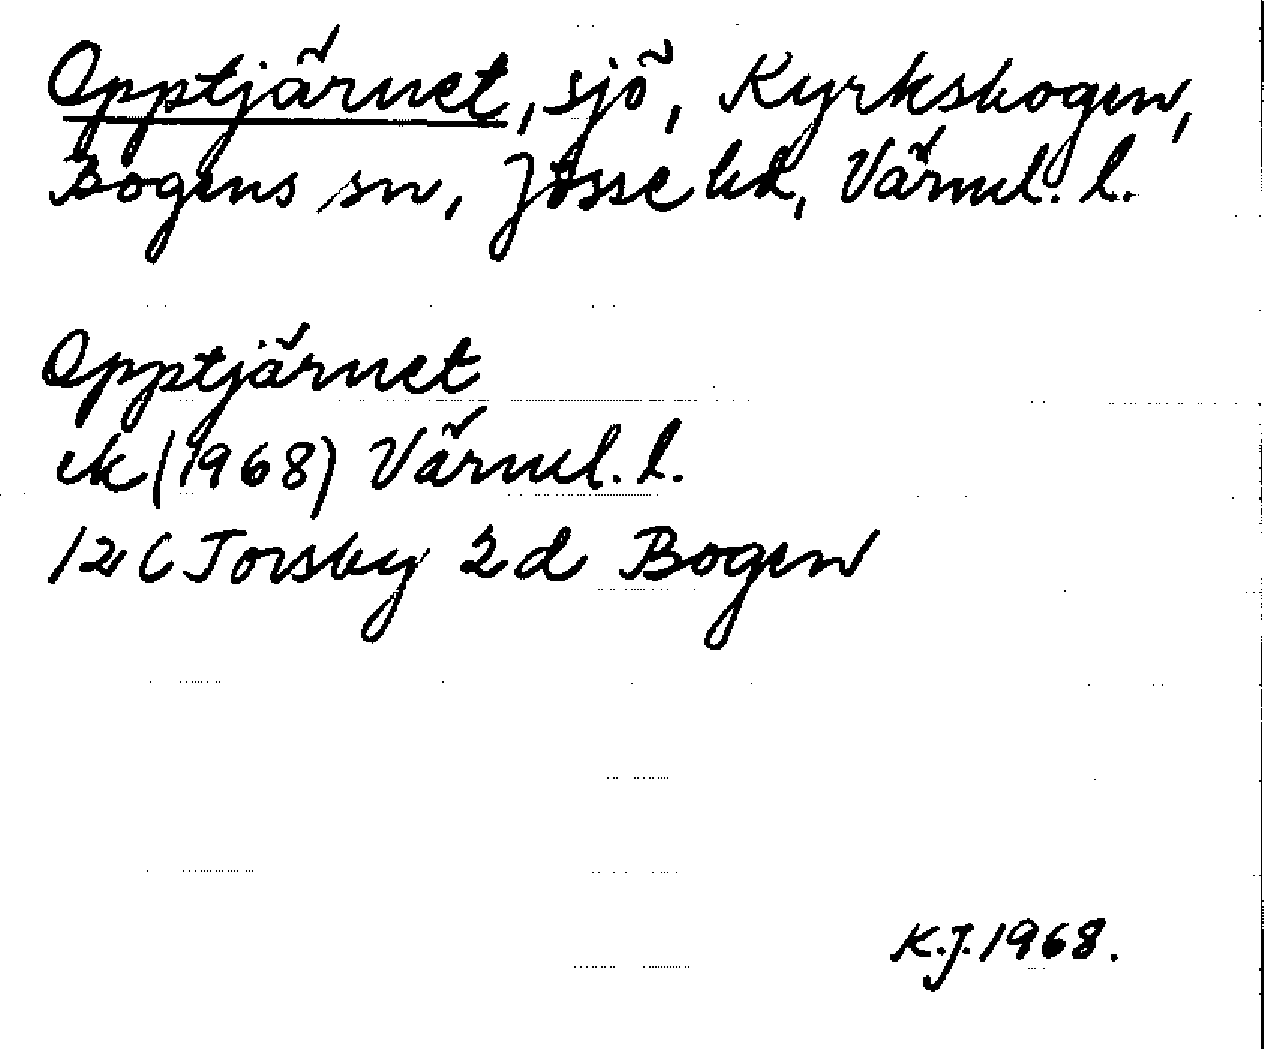 Opptjärnet, sjö, Kyrkskogen,
Bogens sn, Jösse hd, Värml. l.
Opptjärnet
ek (1968) Värml. l.
12 C Torsby 2 d Bogen
K.J. 1968.